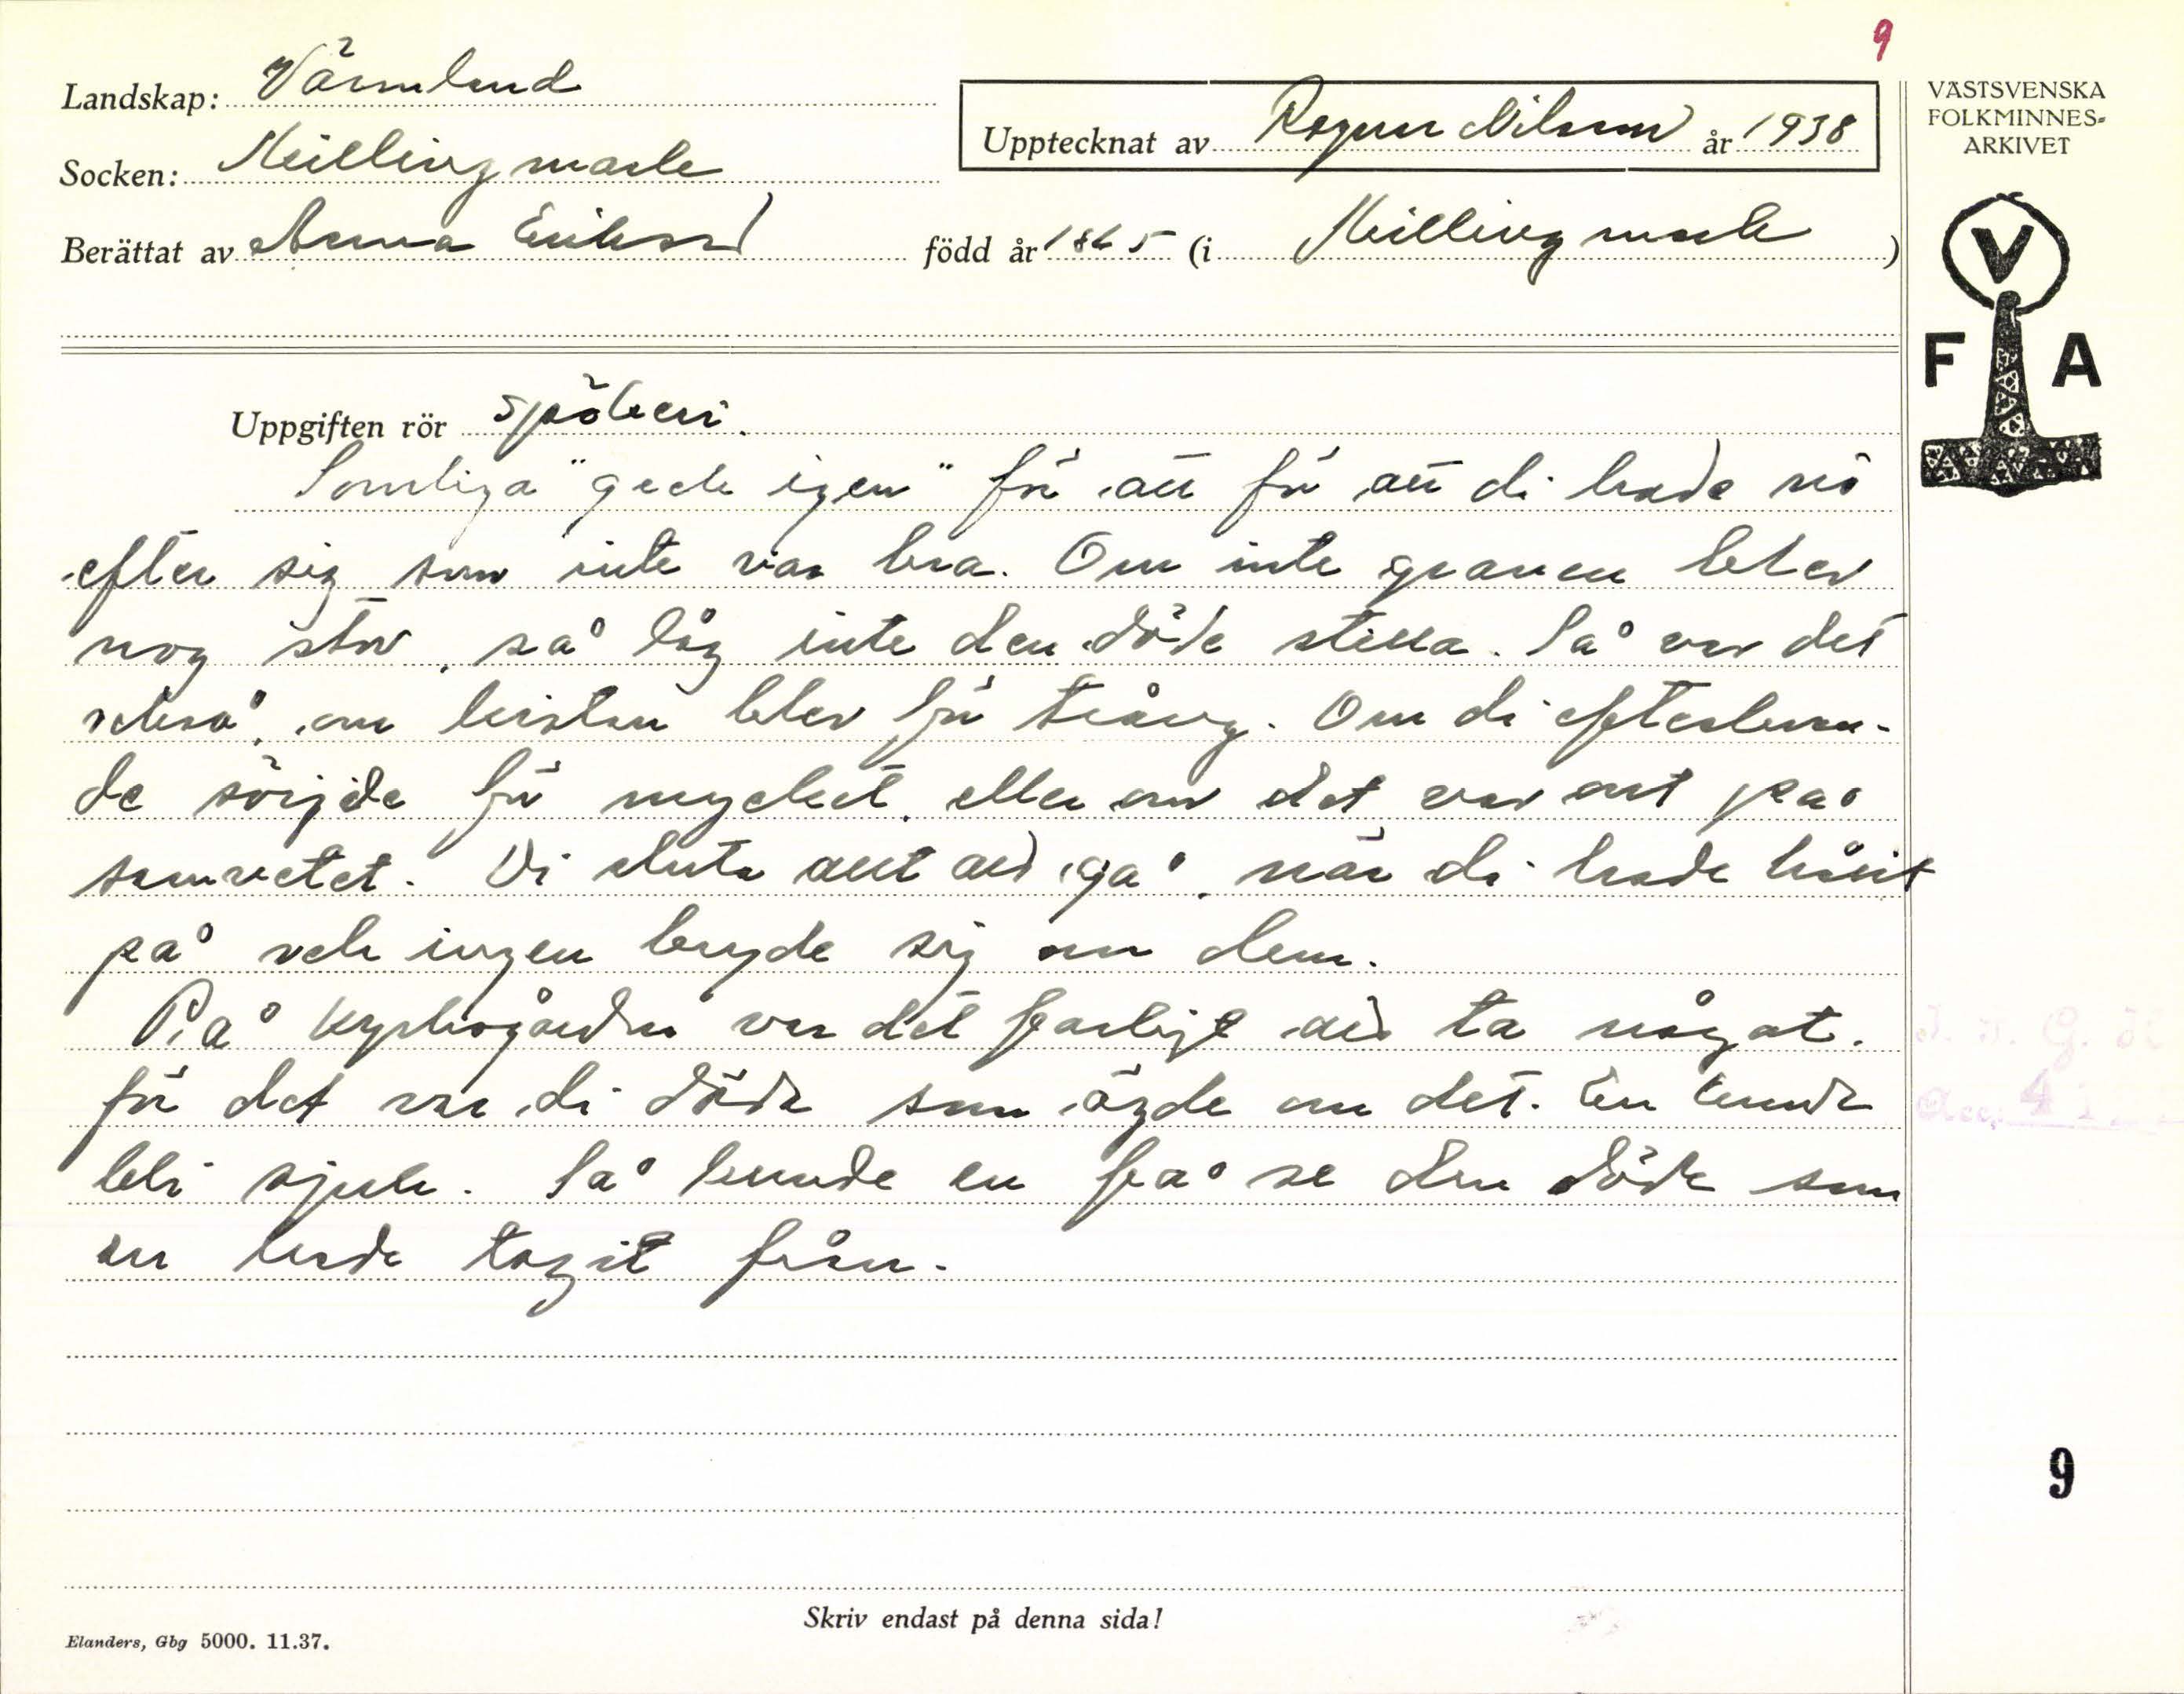 9
Landskap: Värmland
Socken: Hillingmark
Upptecknat av Ragnar Nilsson år 1938
Berättat av Anna Eriksson född år 1865 (i Hillingmark)
VÄSTSVENSKA
FOLKMINNES-
ARKIVET
V
F A
Uppgiften rör spökeri.
Somliga "geck igen" för att för att di hade nö
efter sig som inte var bra. Om inte graven blev
nog stor, så låg inte den döde stilla. Så var det
också, om kistan blev för trång. Om di efterlevan-
de sörjde för mycket, eller om det var ont på
samvetet. Di sluta att gå, när di hade hållit
på och ingen brydde sig om dem.
På kyrkogården var det farligt att ta något.
för det var di döde som ägde om det. En kunde
bli sjuk. Så kunde en få se den döde som
en hade tagit från.
9
Skriv endast på denna sida!
Elanders, Gbg 5000. 11.37.